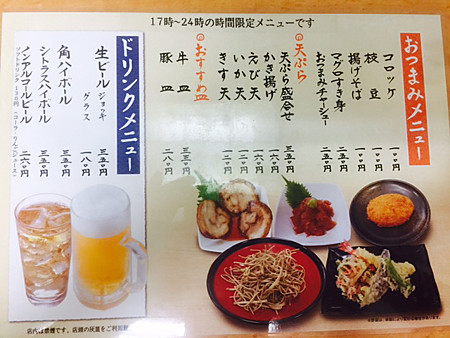 17時~24時の時間限定メニューです
おつまみメニュー
コロッケ 一〇〇円
枝豆 一〇〇円
揚げそば 一〇〇円
マグロすき身 二五〇円
おつまみチャーシュー 二五〇円
◎天ぷら
天ぷら盛合せ 三五〇円
かき揚げ 一六〇円
えび天 一六〇円
いか天 一二〇円
きす天 一二〇円
◎おすすめ皿
牛皿 三三〇円
豚皿 二八〇円
ドリンクメニュー
生ビール ジョッキ 三五〇円
グラス 一八〇円
角ハイボール 三五〇円
シトラスハイボール 三五〇円
ノンアルコールビール 二六〇円